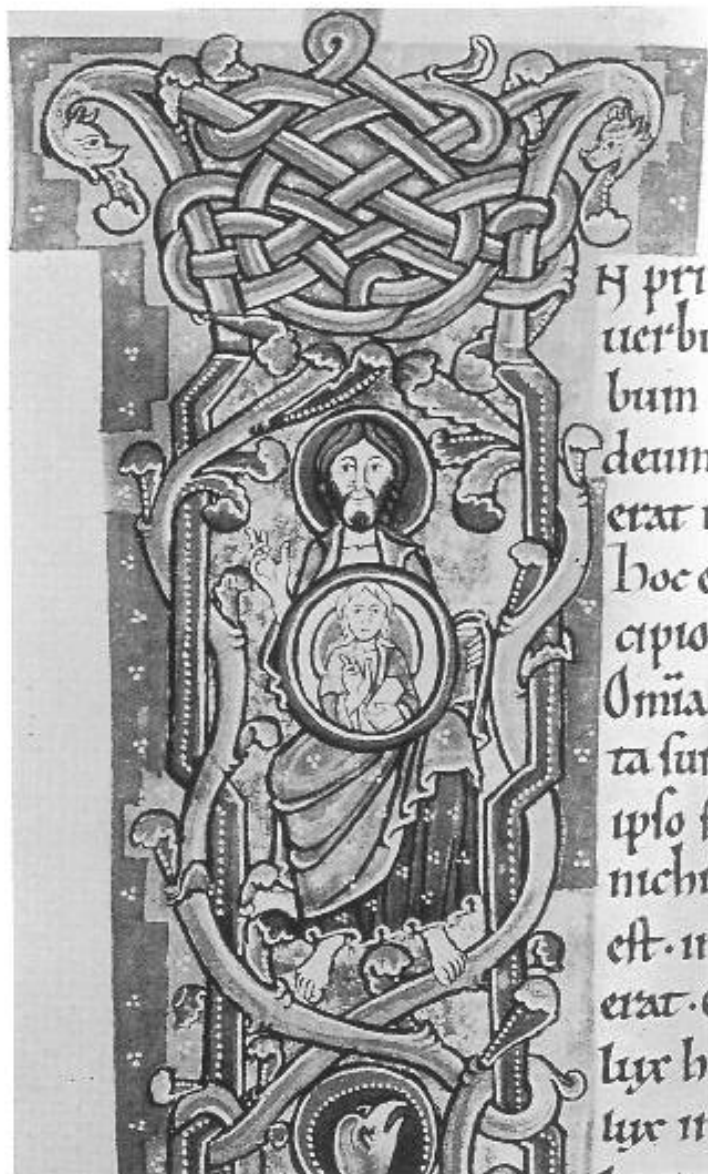 N pri
uerbu
bum
deum
erat
hoc e
cipio
Omīa
ta sun
ipso f
nichi
est · in
erat ·
lux h
lux in